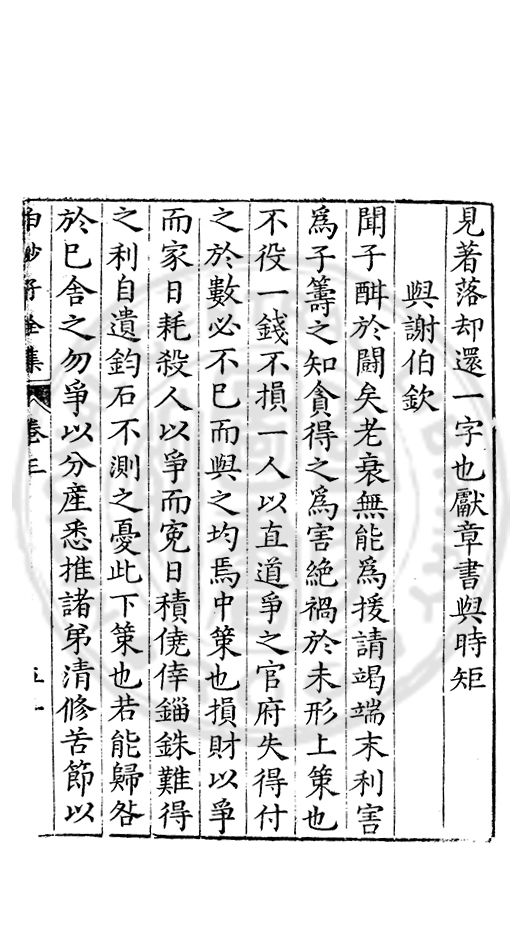 見著落却還一字也獻章書與時矩
與謝伯欽
聞子酣於鬭矣老衰無能爲援請竭端末利害
爲子籌之知貪得之爲害絶禍於未形上策也
不役一錢不損一人以直道爭之官府失得付
之於數必不已而與之均焉中策也損財以爭
而家日耗殺人以爭而寃日積僥倖錙銖難得
之利自遺鈞石不測之憂此下策也若能歸咎
於已舍之勿爭以分産悉推諸弟清修苦節以
白沙子全集 卷三